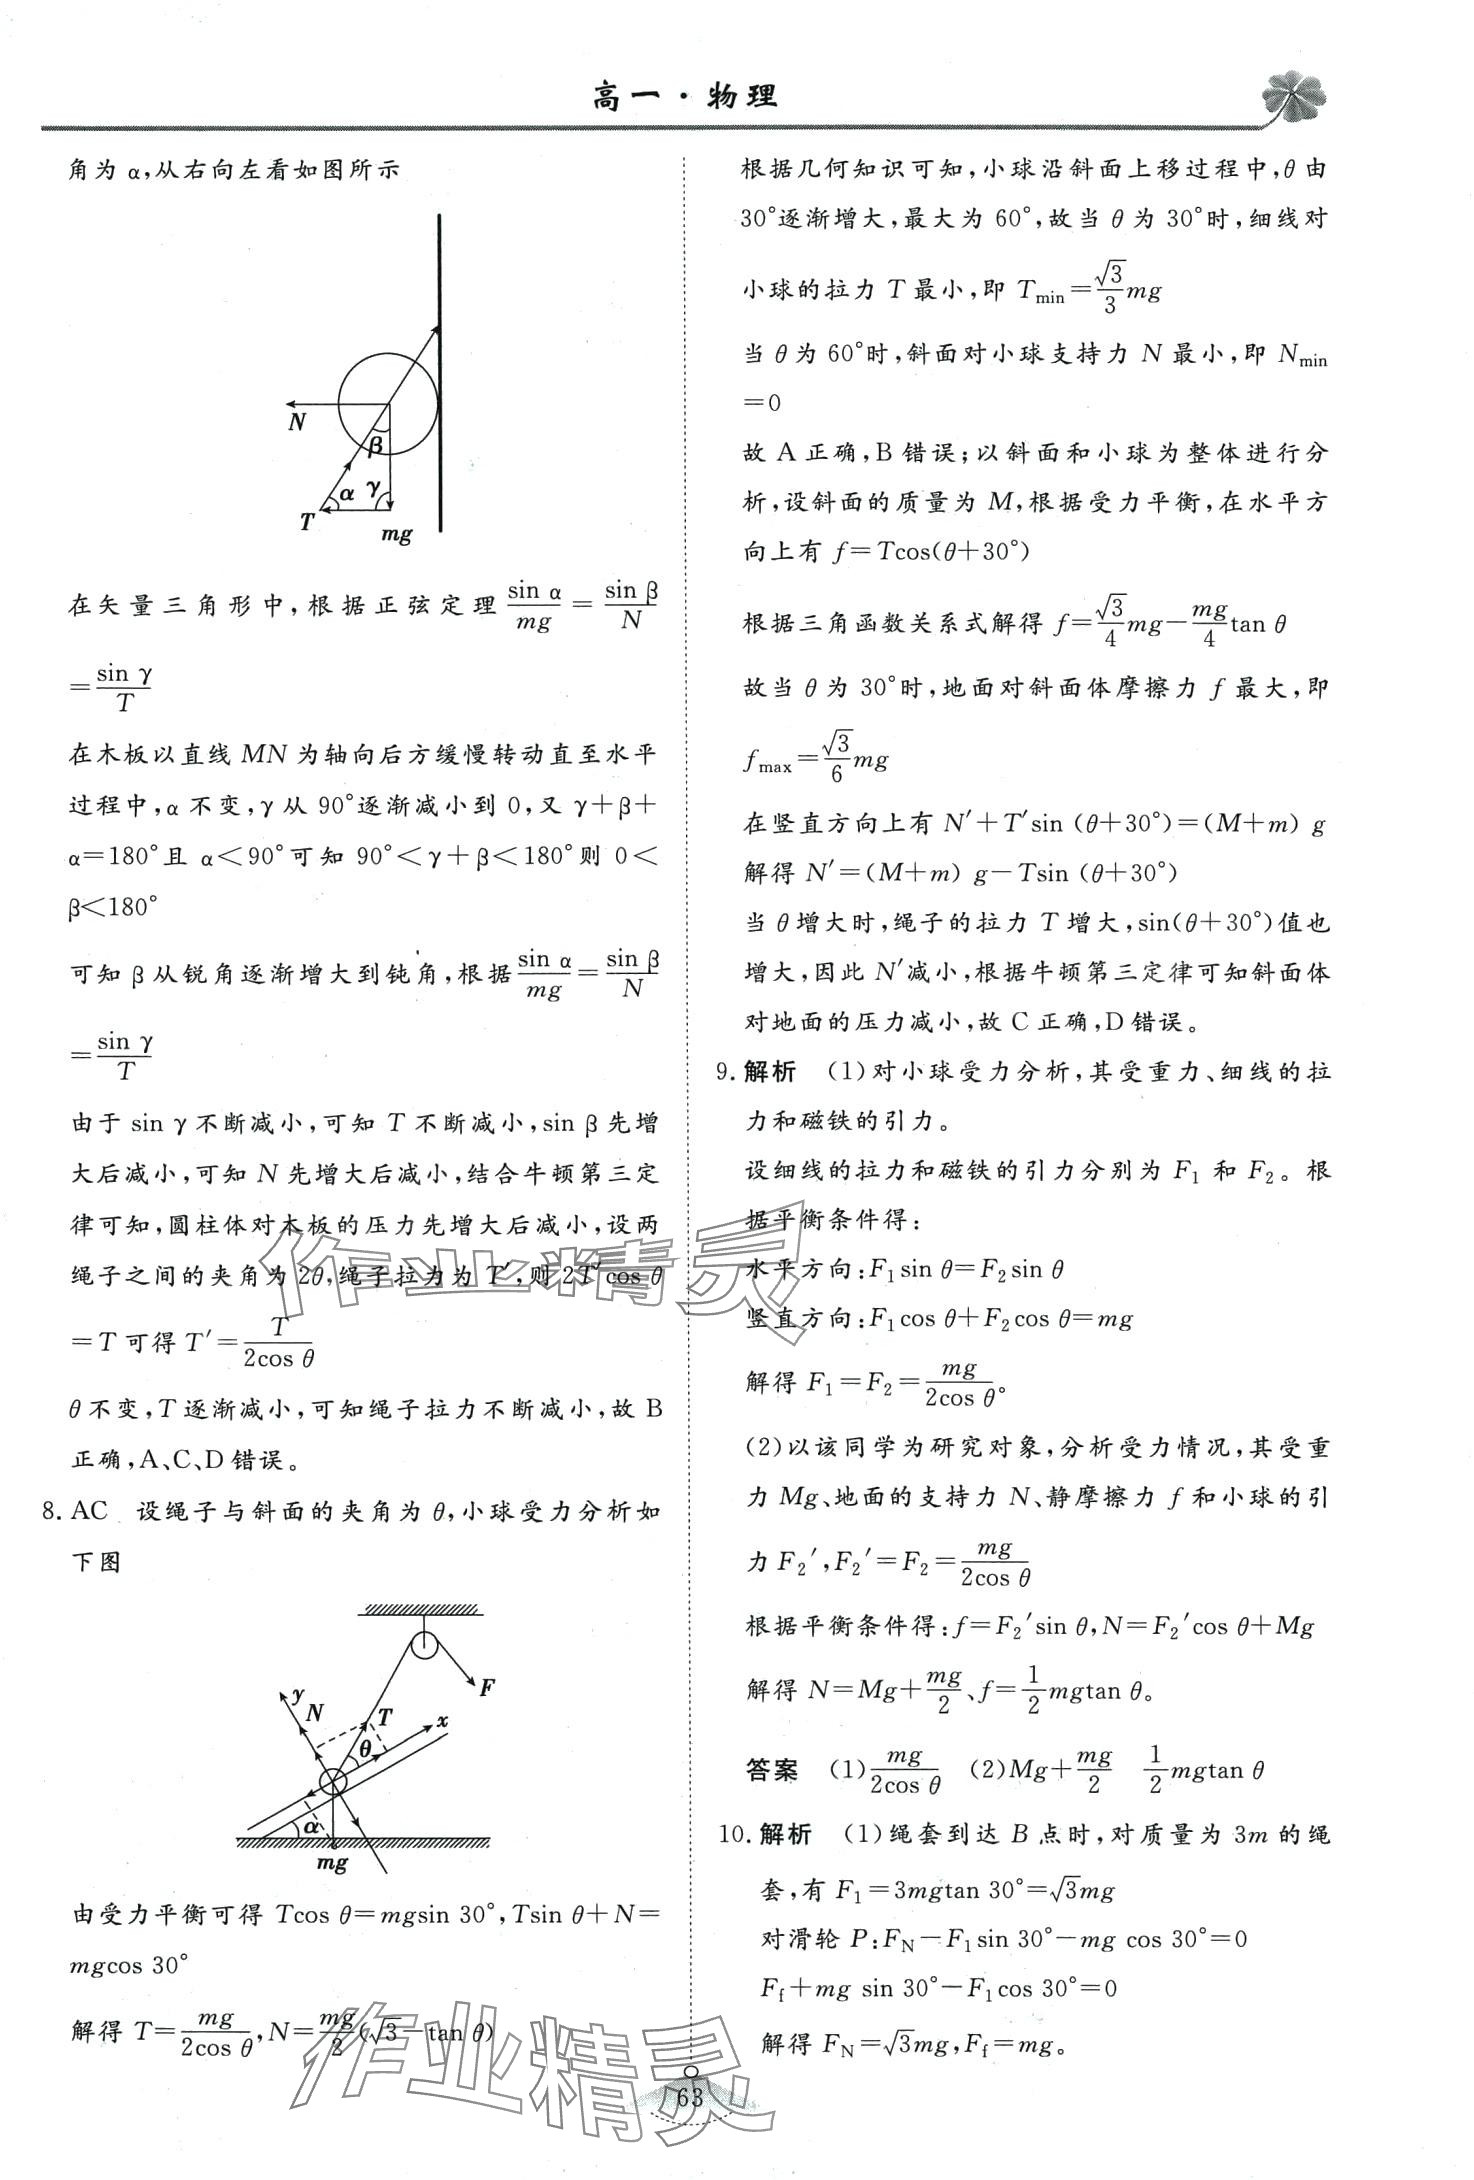 高一·物理
角为 α,从右向左看如图所示
N
β
α
γ
T
mg
在矢量三角形中,根据正弦定理 sin α/mg = sin β/N
= sin γ/T
在木板以直线 MN 为轴向后方缓慢转动直至水平
过程中,α 不变,γ 从 90°逐渐减小到 0,又 γ+β+
α=180°且 α<90°可知 90°<γ+β<180°则 0<
β<180°
可知 β 从锐角逐渐增大到钝角,根据 sin α/mg = sin β/N
= sin γ/T
由于 sin γ 不断减小,可知 T 不断减小,sin β 先增
大后减小,可知 N 先增大后减小,结合牛顿第三定
律可知,圆柱体对木板的压力先增大后减小,设两
绳子之间的夹角为 2θ,绳子拉力为 T′,则 2T′cos θ
=T 可得 T′= T/2cos θ
θ 不变,T 逐渐减小,可知绳子拉力不断减小,故 B
正确,A、C、D 错误。
8. AC 设绳子与斜面的夹角为 θ,小球受力分析如
下图
F
y
N
T
x
θ
α
mg
由受力平衡可得 Tcos θ=mgsin 30°,Tsin θ+N=
mgcos 30°
解得 T= mg/2cos θ ,N= mg/2 (√3-tan θ)
根据几何知识可知,小球沿斜面上移过程中,θ 由
30°逐渐增大,最大为 60°,故当 θ 为 30°时,细线对
小球的拉力 T 最小,即 Tmin= √3/3 mg
当 θ 为 60°时,斜面对小球支持力 N 最小,即 Nmin
=0
故 A 正确,B 错误;以斜面和小球为整体进行分
析,设斜面的质量为 M,根据受力平衡,在水平方
向上有 f=Tcos(θ+30°)
根据三角函数关系式解得 f= √3/4 mg- mg/4 tan θ
故当 θ 为 30°时,地面对斜面体摩擦力 f 最大,即
fmax= √3/6 mg
在竖直方向上有 N′+T′sin (θ+30°)=(M+m) g
解得 N′=(M+m) g-Tsin (θ+30°)
当 θ 增大时,绳子的拉力 T 增大,sin(θ+30°)值也
增大,因此 N′减小,根据牛顿第三定律可知斜面体
对地面的压力减小,故 C 正确,D 错误。
9. 解析 (1)对小球受力分析,其受重力、细线的拉
力和磁铁的引力。
设细线的拉力和磁铁的引力分别为 F₁ 和 F₂。根
据平衡条件得:
水平方向:F₁sin θ=F₂sin θ
竖直方向:F₁cos θ+F₂cos θ=mg
解得 F₁=F₂= mg/2cos θ 。
(2)以该同学为研究对象,分析受力情况,其受重
力 Mg、地面的支持力 N、静摩擦力 f 和小球的引
力 F₂′,F₂′=F₂= mg/2cos θ
根据平衡条件得:f=F₂′sin θ,N=F₂′cos θ+Mg
解得 N=Mg+ mg/2 、f= 1/2 mgtan θ。
答案 (1) mg/2cos θ (2)Mg+ mg/2 1/2 mgtan θ
10. 解析 (1)绳套到达 B 点时,对质量为 3m 的绳
套,有 F₁=3mgtan 30°=√3mg
对滑轮 P:FN-F₁sin 30°-mg cos 30°=0
Ff+mg sin 30°-F₁cos 30°=0
解得 FN=√3mg,Ff=mg。
63
作业精灵
作业精灵